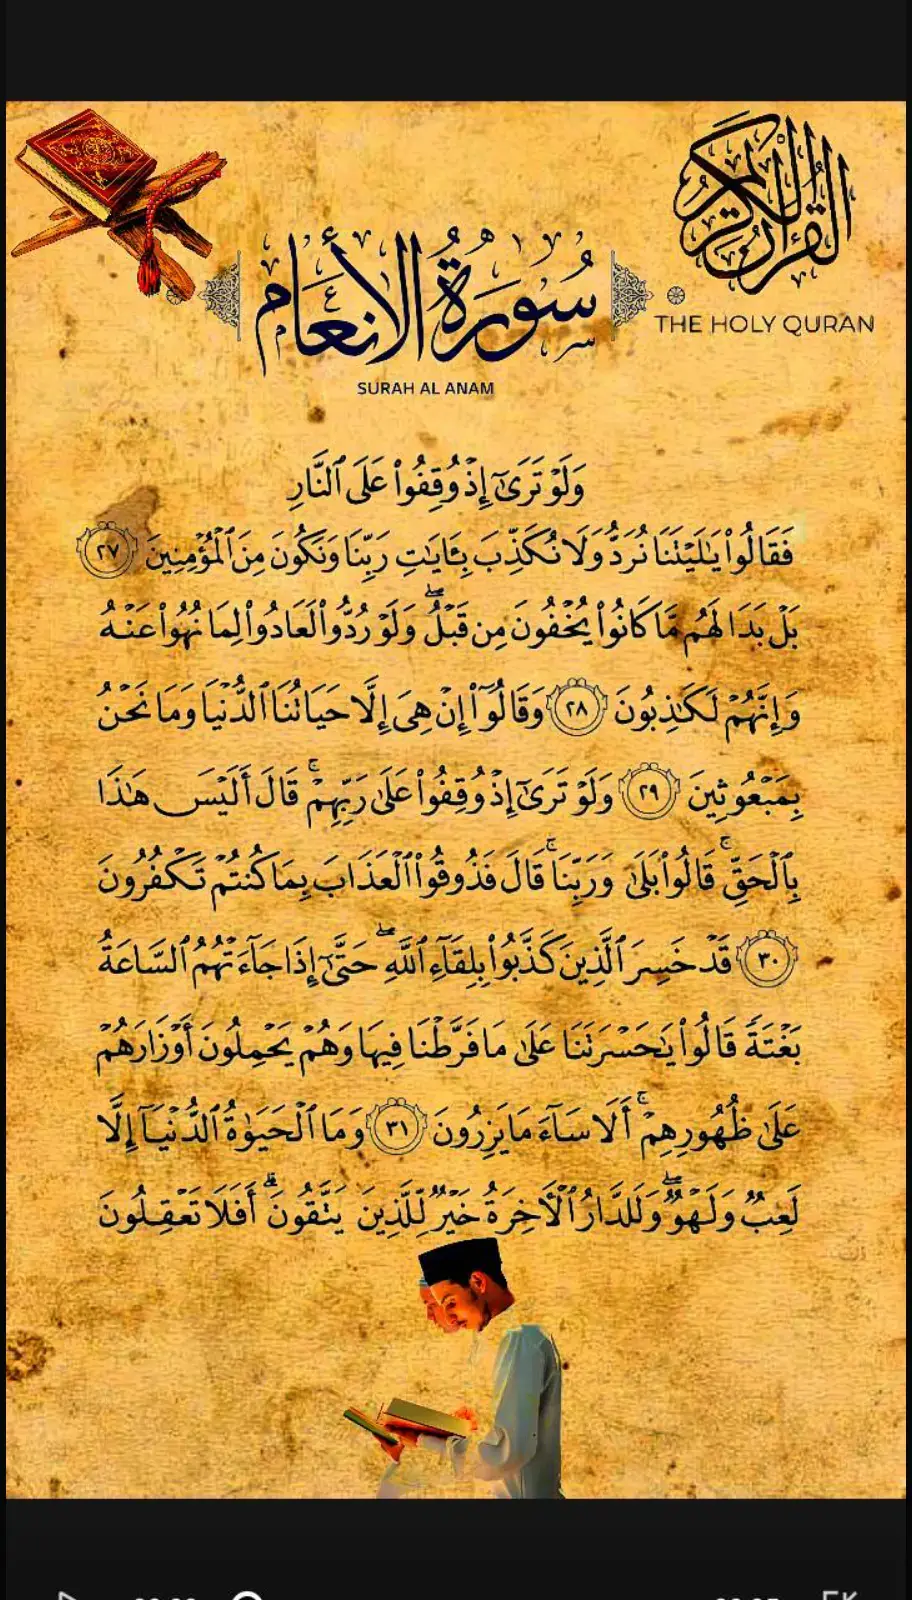 القرآن الكريم
THE HOLY QURAN
سُورَةُ الأَنْعَامِ
SURAH AL ANAM
وَلَوْ تَرَىٰٓ إِذْ وُقِفُوا۟ عَلَى ٱلنَّارِ
فَقَالُوا۟ يَـٰلَيْتَنَا نُرَدُّ وَلَا نُكَذِّبَ بِـَٔايَـٰتِ رَبِّنَا وَنَكُونَ مِنَ ٱلْمُؤْمِنِينَ ٢٧
بَلْ بَدَا لَهُم مَّا كَانُوا۟ يُخْفُونَ مِن قَبْلُ ۖ وَلَوْ رُدُّوا۟ لَعَادُوا۟ لِمَا نُهُوا۟ عَنْهُ
وَإِنَّهُمْ لَكَـٰذِبُونَ ٢٨ وَقَالُوٓا۟ إِنْ هِىَ إِلَّا حَيَاتُنَا ٱلدُّنْيَا وَمَا نَحْنُ
بِمَبْعُوثِينَ ٢٩ وَلَوْ تَرَىٰٓ إِذْ وُقِفُوا۟ عَلَىٰ رَبِّهِمْ ۚ قَالَ أَلَيْسَ هَـٰذَا
بِٱلْحَقِّ ۚ قَالُوا۟ بَلَىٰ وَرَبِّنَا ۚ قَالَ فَذُوقُوا۟ ٱلْعَذَابَ بِمَا كُنتُمْ تَكْفُرُونَ
٣٠ قَدْ خَسِرَ ٱلَّذِينَ كَذَّبُوا۟ بِلِقَآءِ ٱللَّهِ ۖ حَتَّىٰٓ إِذَا جَآءَتْهُمُ ٱلسَّاعَةُ
بَغْتَةً قَالُوا۟ يَـٰحَسْرَتَنَا عَلَىٰ مَا فَرَّطْنَا فِيهَا وَهُمْ يَحْمِلُونَ أَوْزَارَهُمْ
عَلَىٰ ظُهُورِهِمْ ۚ أَلَا سَآءَ مَا يَزِرُونَ ٣١ وَمَا ٱلْحَيَوٰةُ ٱلدُّنْيَآ إِلَّا
لَعِبٌ وَلَهْوٌ ۖ وَلَلدَّارُ ٱلْـَٔاخِرَةُ خَيْرٌ لِّلَّذِينَ يَتَّقُونَ ۗ أَفَلَا تَعْقِلُونَ